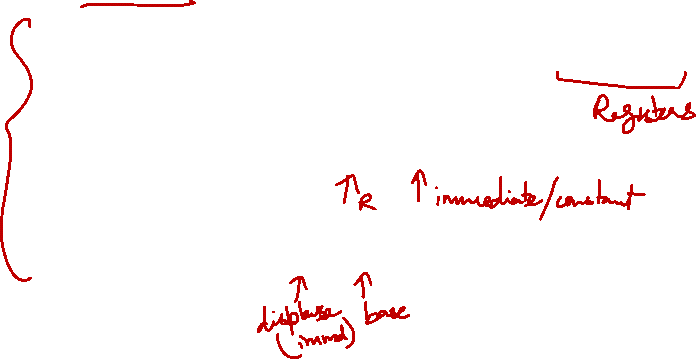 Registers
R immediate/constant
displace base
(immd)